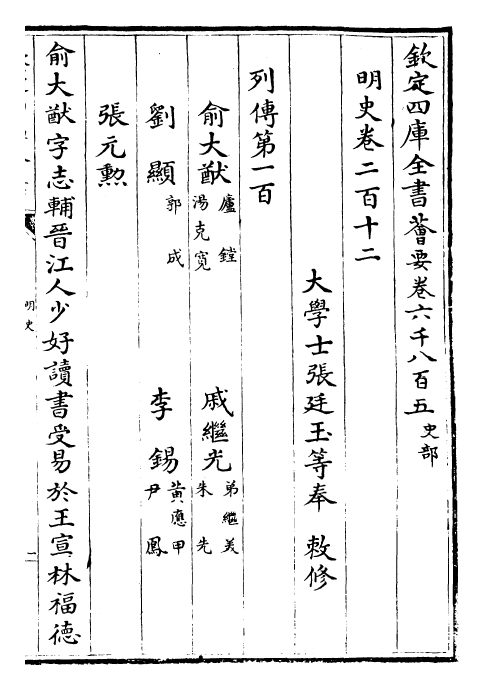 欽定四庫全書薈要卷六千八百五 史部
明史卷二百十二
大學士張廷玉等奉 敕修
列傳第一百
俞大猷 盧鏜 湯克寬 戚繼光 弟繼美 朱先
劉顯 郭成 李錫 黃應甲 尹鳳
張元勲
俞大猷字志輔晉江人少好讀書受易於王宣林福德
明史